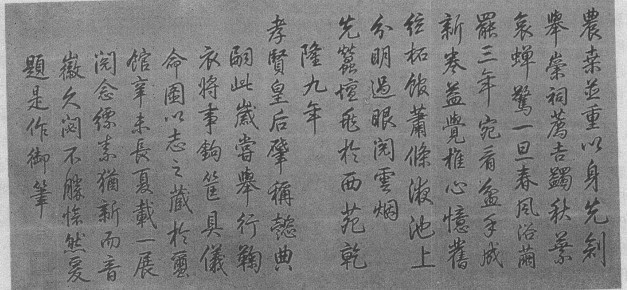 農桑並重以身先創
舉崇祠薦吉蠲秋葉
哀蟬驚一旦春風浴繭
罷三年宛看盆手成
新卷益覺椎心憶舊
絃柘館蕭條液池上
分明過眼閱雲烟
先蠶壇成於西苑乾
隆九年
孝賢皇后肇稱懿典
嗣此歲嘗舉行鞠
衣將事鉤筐具儀
命圖以志之藏於蠶
館辛未長夏載一展
閱念縹素猶新而音
徽久閟不勝愴然爰
題是作御筆